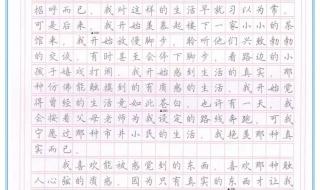 招呼而已，我对这样的生活早就习以为常。
可是后来，我开始羡慕起下一家小小的茶
馆来，我开始放慢脚步，聆听他们兴致勃勃
的交谈，有时甚至会停下聊天，看路边的小
孩子嬉戏打闹，我开始感到生活的真实，那
种仿佛能触摸到的有质感的生活。我开始觉
得曾经的生活竟如此苍白，也许有一天，我
会按着父母老师为我设定的路线奔跑，可我
宁愿过那种市井小民的生活，我艳羡那种真
实而已。
我喜欢能被感觉到的东西，喜欢那种触
人心弦的质感，因为只有真实的东西才让我